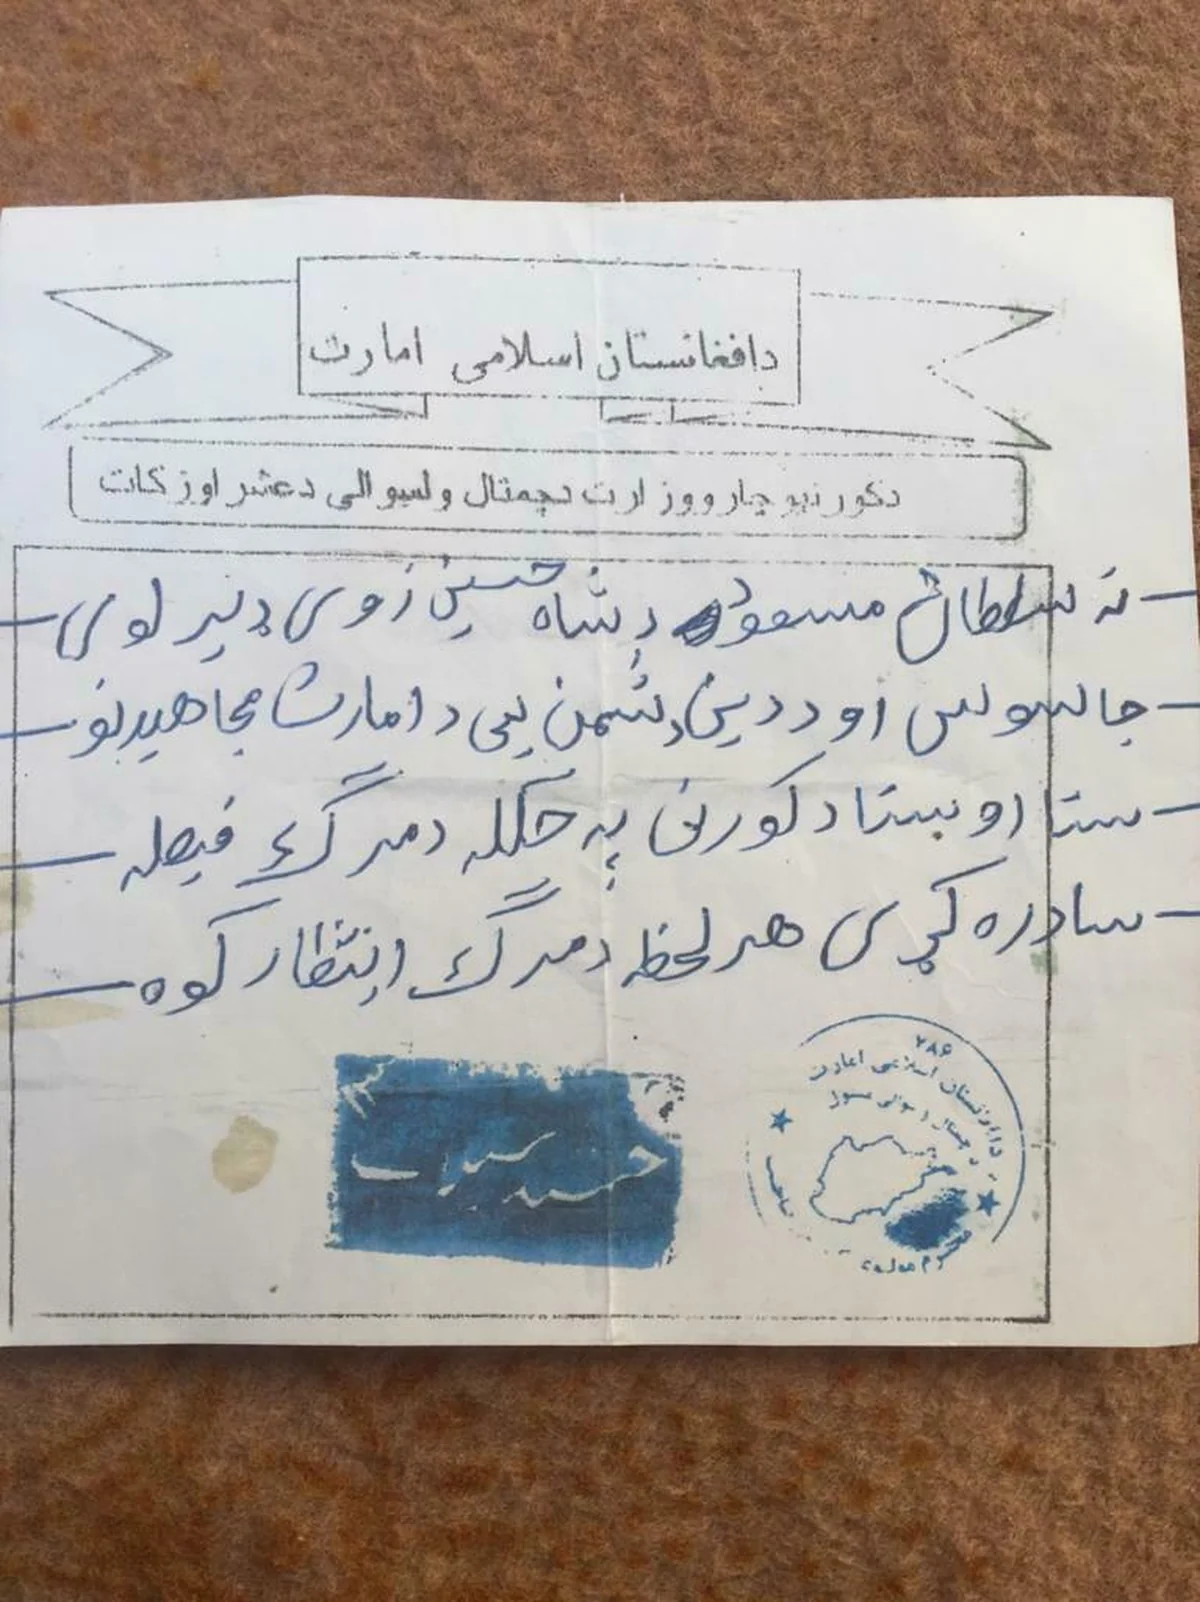 دافغانستان اسلامی امارت
دکورنیو چارو وزارت دچمتال ولسوالی دعشر اوزکات
ته سلطان مسعود دشاه حسین زوی ډیر لوی
جاسوس او ددین دشمن یی د امارت مجاهدینو
ستا او ستا دکورنی په حکله دمرګ فیصله
سادره کړی هر لحظه دمرګ انتظار کوه
۷۸۶
دافغانستان اسلامی امارت